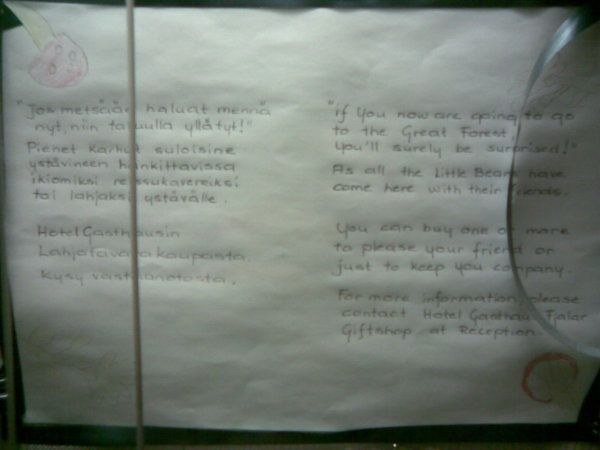 "Jos metsään haluat mennä
nyt, niin takuulla yllätyt!"
Pienet Karhut suloisine
ystävineen hankittavissa
ikiomiksi reissukavereiksi
tai lahjaksi ystävälle.
Hotel Gasthausin
Lahjatavarakaupasta.
Kysy vastaanotosta.
"if You now are going to go
to the Great Forest,
You'll surely be surprised!"
As all the Little Bears have
come here with their friends.
You can buy one or more
to please your friend or
just to keep you company.
For more information, please
contact Hotel Gasthaus Tjalar
Giftshop at Reception